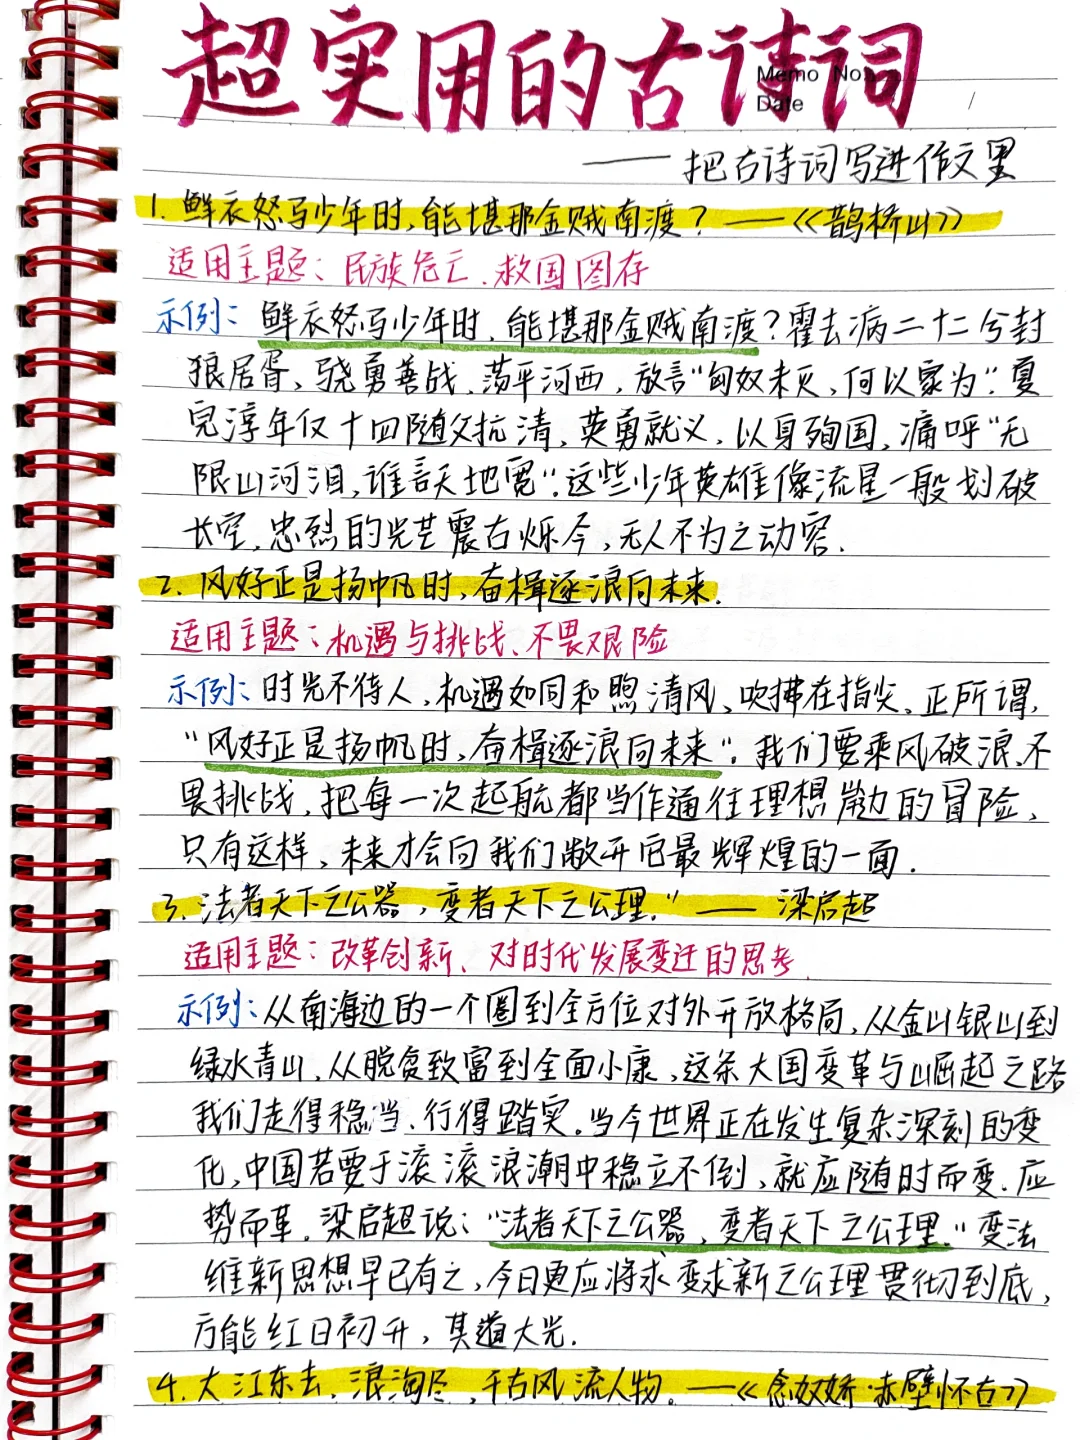 超实用的古诗词
Memo No.
Date /
——把古诗词写进作文里
1. 鲜衣怒马少年时,能堪那金贼南渡?——《鹊桥山》
适用主题:民族危亡、救国图存
示例:鲜衣怒马少年时、能堪那金贼南渡?霍去病二十二兮封
狼居胥,骁勇善战、荡平河西,放言"匈奴未灭,何以家为".夏
完淳年仅十四随父抗清,英勇就义,以身殉国,痛呼"无
限山河泪,谁言天地宽".这些少年英雄像流星一般划破
长空,忠烈的光芒震古烁今,无人不为之动容.
2. 风好正是扬帆时,奋楫逐浪向未来.
适用主题:机遇与挑战、不畏艰险
示例:时光不待人,机遇如同和煦清风、吹拂在指尖、正所谓,
"风好正是扬帆时,奋楫逐浪向未来"。我们要乘风破浪、不
畏挑战,把每一次起航都当作通往理想岸边的冒险,
只有这样,未来才会向我们敞开它最辉煌的一面.
3. 法者天下之公器,变者天下之公理."——梁启超
适用主题:改革创新、对时代发展变迁的思考.
示例:从南海边的一个圈到全方位对外开放格局,从金山银山到
绿水青山,从脱贫致富到全面小康,这条大国变革与崛起之路
我们走得稳当、行得踏实。当今世界正在发生复杂深刻的变
化,中国若要于滚滚浪潮中稳立不倒,就应随时而变.应
势而革。梁启超说:"法者天下之公器,变者天下之公理."变法
维新思想早已有之,今日更应将求变求新之公理贯彻到底,
方能红日初升,其道大光.
4. 大江东去,浪淘尽,千古风流人物。——《念奴娇·赤壁怀古》